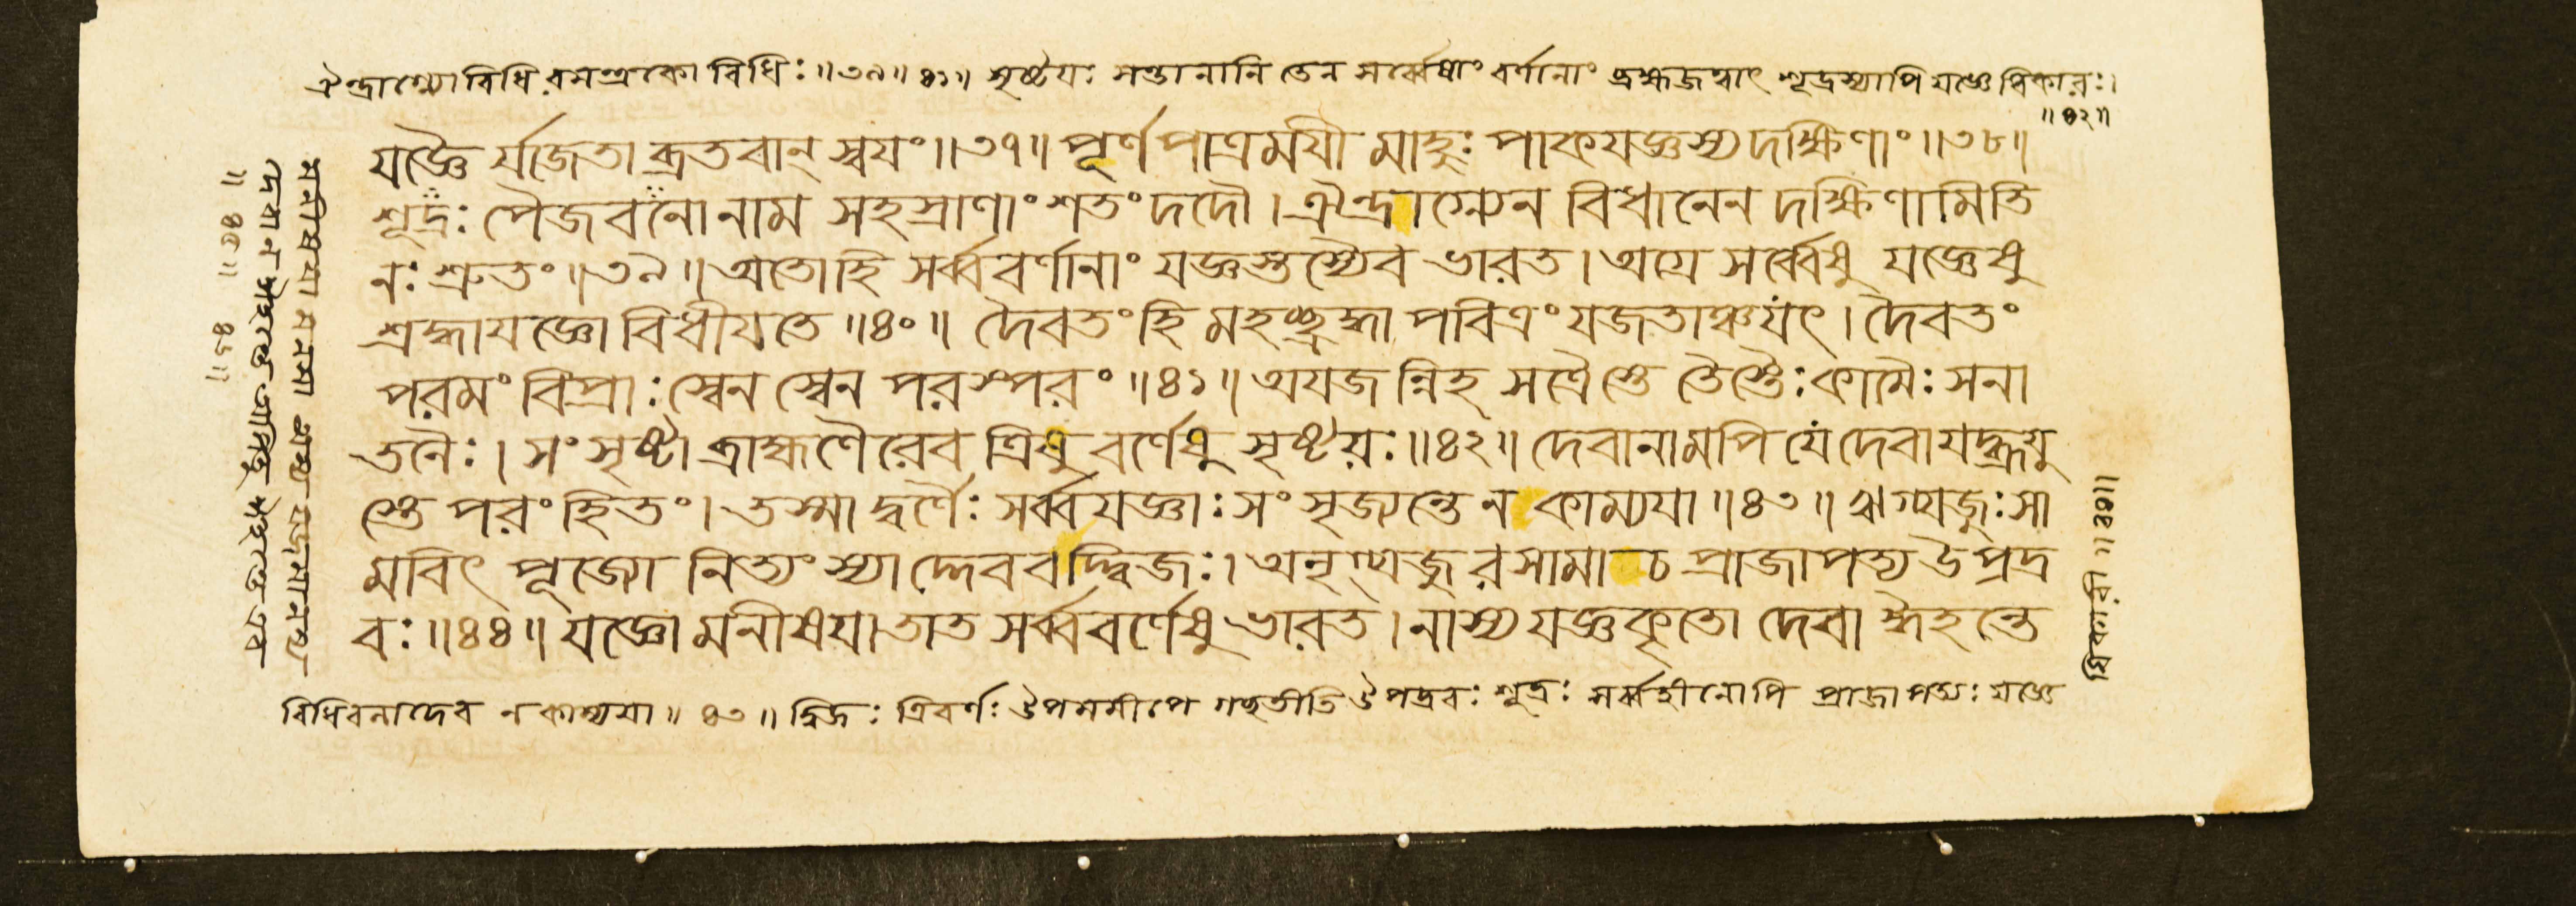 ঐন্দ্রাগ্ন্যো বিধিরমন্ত্রকো বিধিঃ॥৩৯॥ ৪১॥ সৃষ্টয়ঃ সন্তানানি তেন সর্ব্বেষাং বর্ণানাং ব্রহ্মজত্বাৎ শূদ্রস্যাপি যজ্ঞেধিকারঃ।
॥৪২॥
যজ্ঞৈর্যজেতাব্রতবান্ স্বয়ং॥৩৭॥ পূর্ণপাত্রময়ীমাহুঃ পাকযজ্ঞস্য দক্ষিণাং॥৩৮॥
শূদ্রঃ পৈজবনো নাম সহস্রাণাং শতং দদৌ। ঐন্দ্রাগ্ন্যেন বিধানেন দক্ষিণামিতি
নঃ শ্রুতং॥৩৯॥ অতোহি সর্ব্ববর্ণানাং যজ্ঞস্তস্যৈব ভারত। অগ্রে সর্ব্বেষু যজ্ঞেষু
শ্রদ্ধাযজ্ঞো বিধীয়তে॥৪০॥ দৈবতং হি মহচ্ছ্রদ্ধা পবিত্রং যজতাঞ্চ যৎ। দৈবতং
পরমং বিপ্রাঃ স্বেন স্বেন পরস্পরং॥৪১॥ অযজন্নিহ সত্রৈস্তে তৈস্তৈঃ কামৈঃ সনা
তনৈঃ। সংসৃষ্টা ব্রাহ্মণৈরেব ত্রিষু বর্ণেষু সৃষ্টয়ঃ॥৪২॥ দেবানামপি যে দেবা যদ্ব্রূয়ু
স্তে পরং হিতং। তস্মাদ্বর্ণৈঃ সর্ব্বযজ্ঞাঃ সংসৃজ্যন্তে ন কাম্যয়া॥৪৩॥ ঋগ্যজুঃসা
মবিৎ পূজ্যো নিত্যং স্যাদ্দেববদ্দ্বিজঃ। অনৃগ্যজুরসামা চ প্রাজাপত্য উপদ্র
বঃ॥৪৪॥ যজ্ঞো মনীষয়া তাত সর্ব্ববর্ণেষু ভারত। নাস্য যজ্ঞকৃতো দেবা ঈহন্তে
বিধিবলাদেব ন কাম্যয়া॥ ৪৩॥ দ্বিজঃ ত্রিবর্ণঃ উপসমীপে গচ্ছতীতি উপদ্রবঃ শূদ্রঃ সর্ব্বহীনোপি প্রাজাপত্যঃ যজ্ঞে
ধিকারী॥ ৪৪॥
মনীষয়া মনসা
॥ ৪৫॥ ৪৬॥